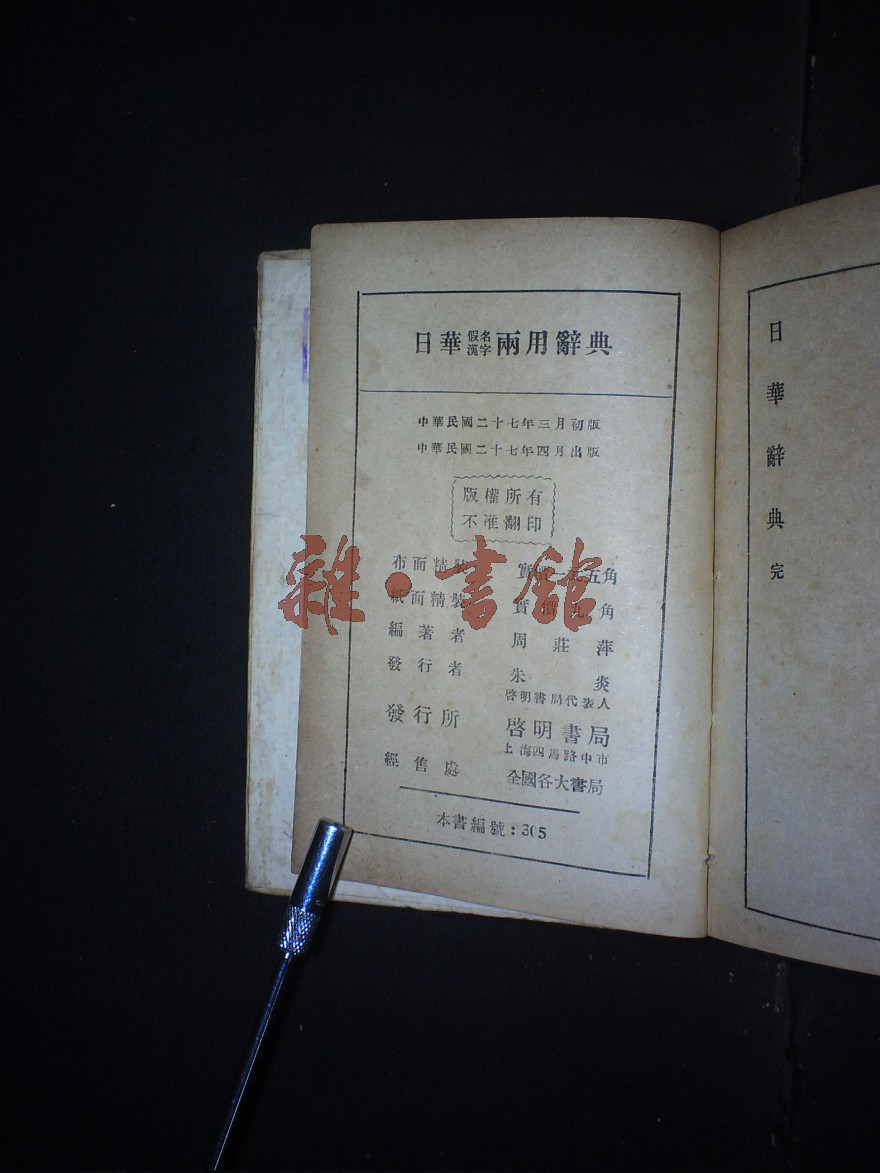 日華假名漢字兩用辭典
中華民國二十七年三月初版
中華民國二十七年四月出版
版權所有
不准翻印
布面精裝 實價一元五角
紙面精裝 實價九角
編著者 周莊萍
發行者 朱炎
啓明書局代表人
發行所 啓明書局
上海四馬路中市
經售處 全國各大書局
本書編號：305
日華辭典 完
雜·書館